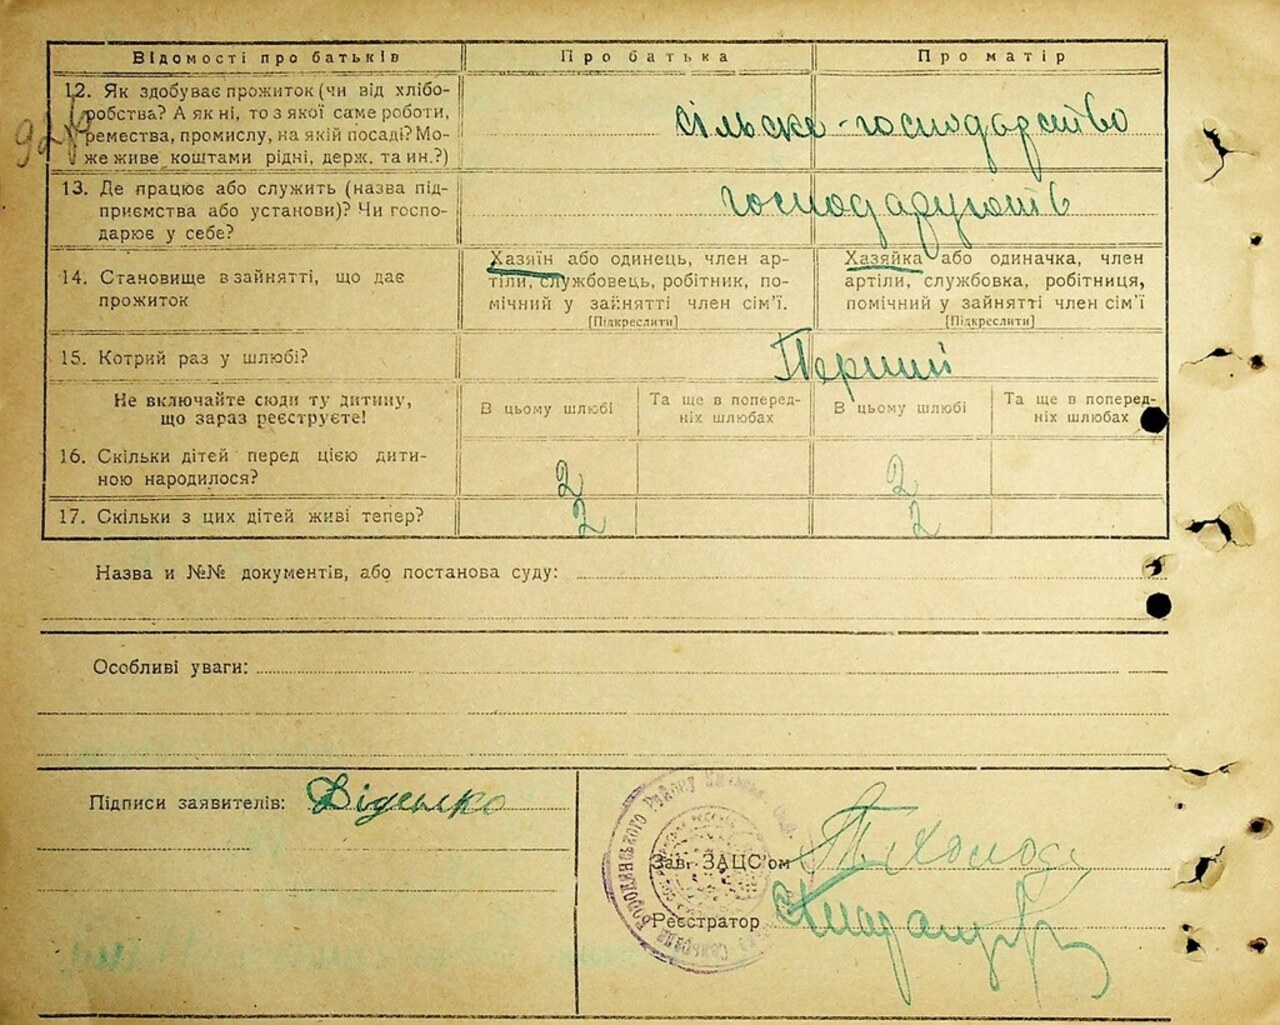 Відомості про батьків Про батька Про матір
12. Як здобуває прожиток (чи від хлібо-
робства? А як ні, то з якої саме роботи,
ремества, промислу, на якій посаді? Мо-
же живе коштами рідні, держ. та ин.?)
сільске-господарство
92
13. Де працює або служить (назва під-
приємства або установи)? Чи госпо-
дарює у себе?
господарують
14. Становище в зайнятті, що дає
прожиток
Хазяїн або одинець, член ар-
тіли, службовець, робітник, по-
мічний у зайнятті член сім'ї.
[Підкреслити]
Хазяйка або одиначка, член
артіли, службовка, робітниця,
помічний у зайнятті член сім'ї
[Підкреслити]
15. Котрий раз у шлюбі? Перший
Не включайте сюди ту дитину,
що зараз реєструєте!
В цьому шлюбі
Та ще в поперед-
ніх шлюбах
В цьому шлюбі
Та ще в поперед-
ніх шлюбах
16. Скільки дітей перед цією дити-
ною народилося? 2 2
17. Скільки з цих дітей живі тепер? 2 2
Назва и №№ документів, або постанова суду:
Особливі уваги:
Підписи заявителів: Діденко
Зав. ЗАЦС'ом
Реєстратор